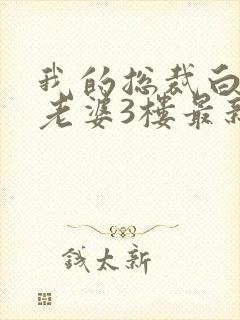 我的总裁白
老婆3楼最新
钱太新